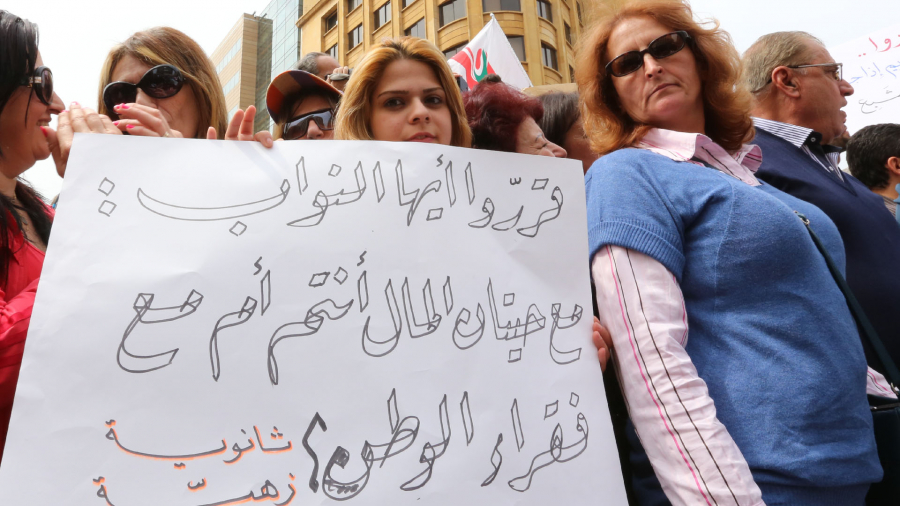 قرّروا أيها النواب :
مع حيتان المال أنتم أم مع
فقراء الوطن؟
ثانوية
زهيّة